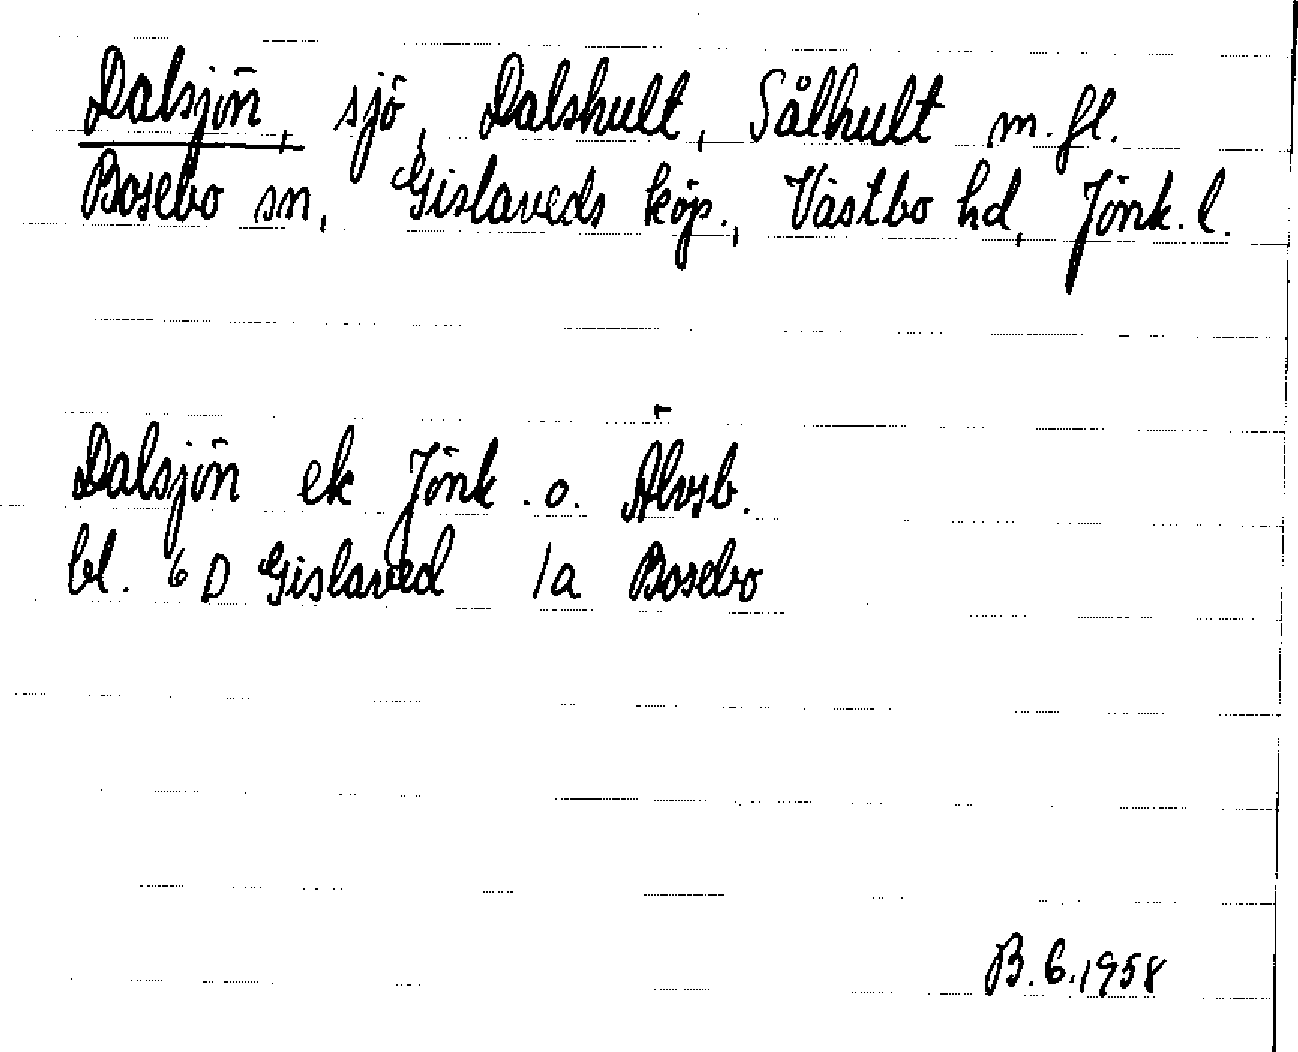 Dalsjön, sjö, Dalshult, Sålhult m.fl.
Bosebo sn, Gislaveds köp., Västbo hd, Jönk.l.
Dalsjön ek Jönk. o. Älvsb.
bl. 6 D Gislaved 1a Bosebo
B.G.1958